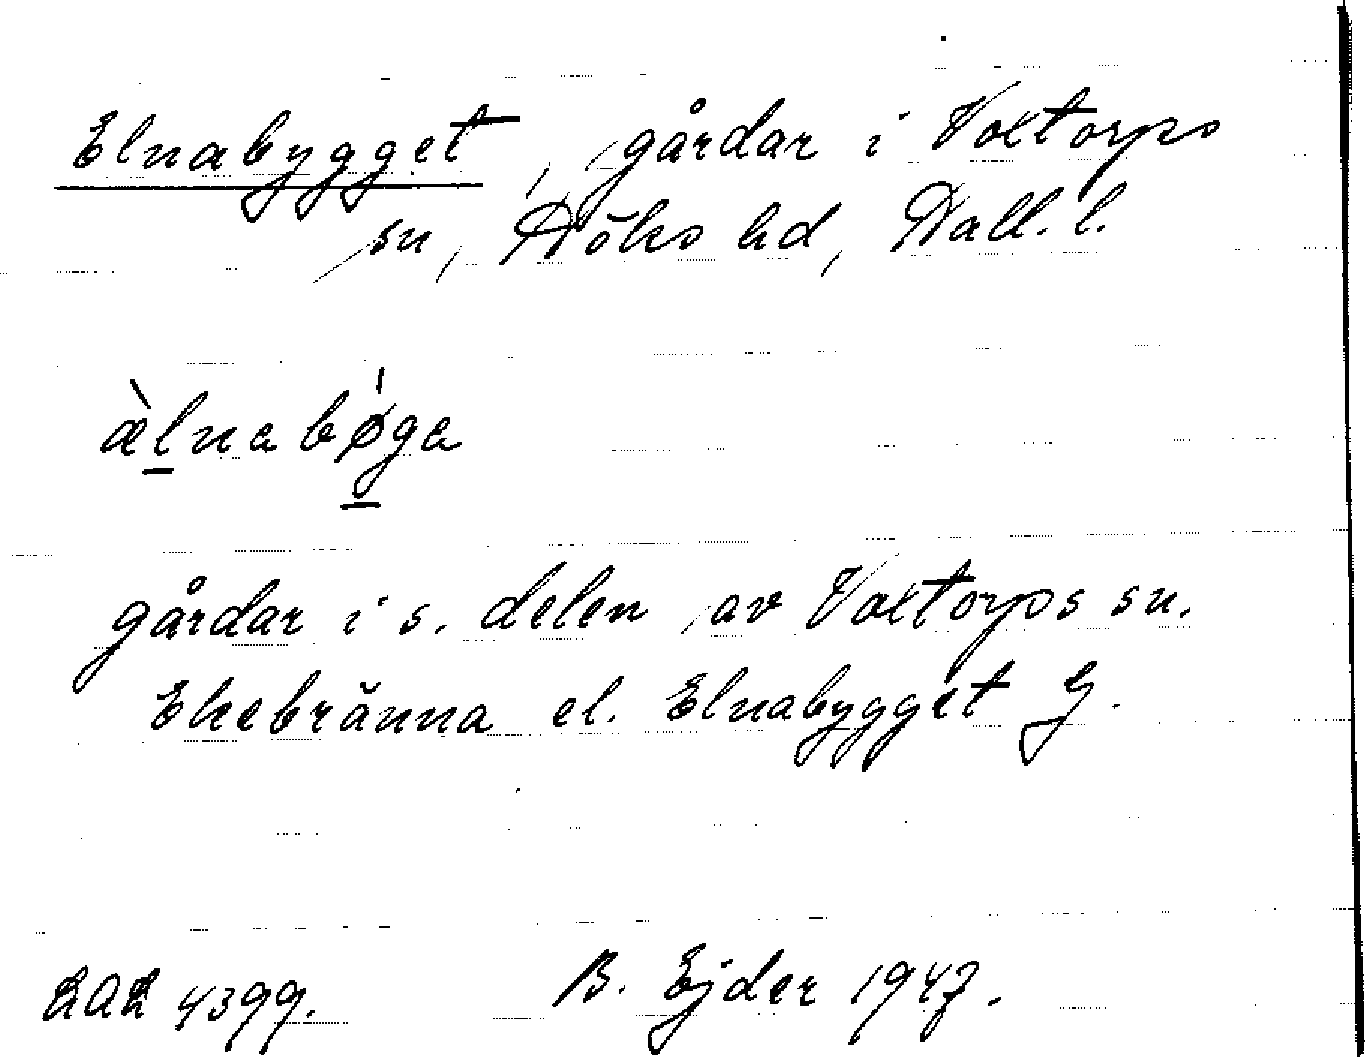 Elnabygget, gårdar i Voxtorps
sn, Höks hd, Hall. l.
æ̀lnabø̍ga
gårdar i s. delen av Voxtorps sn.
Ekebränna el. Elnabygget G.
LAL 4399. B. Ejder 1947.